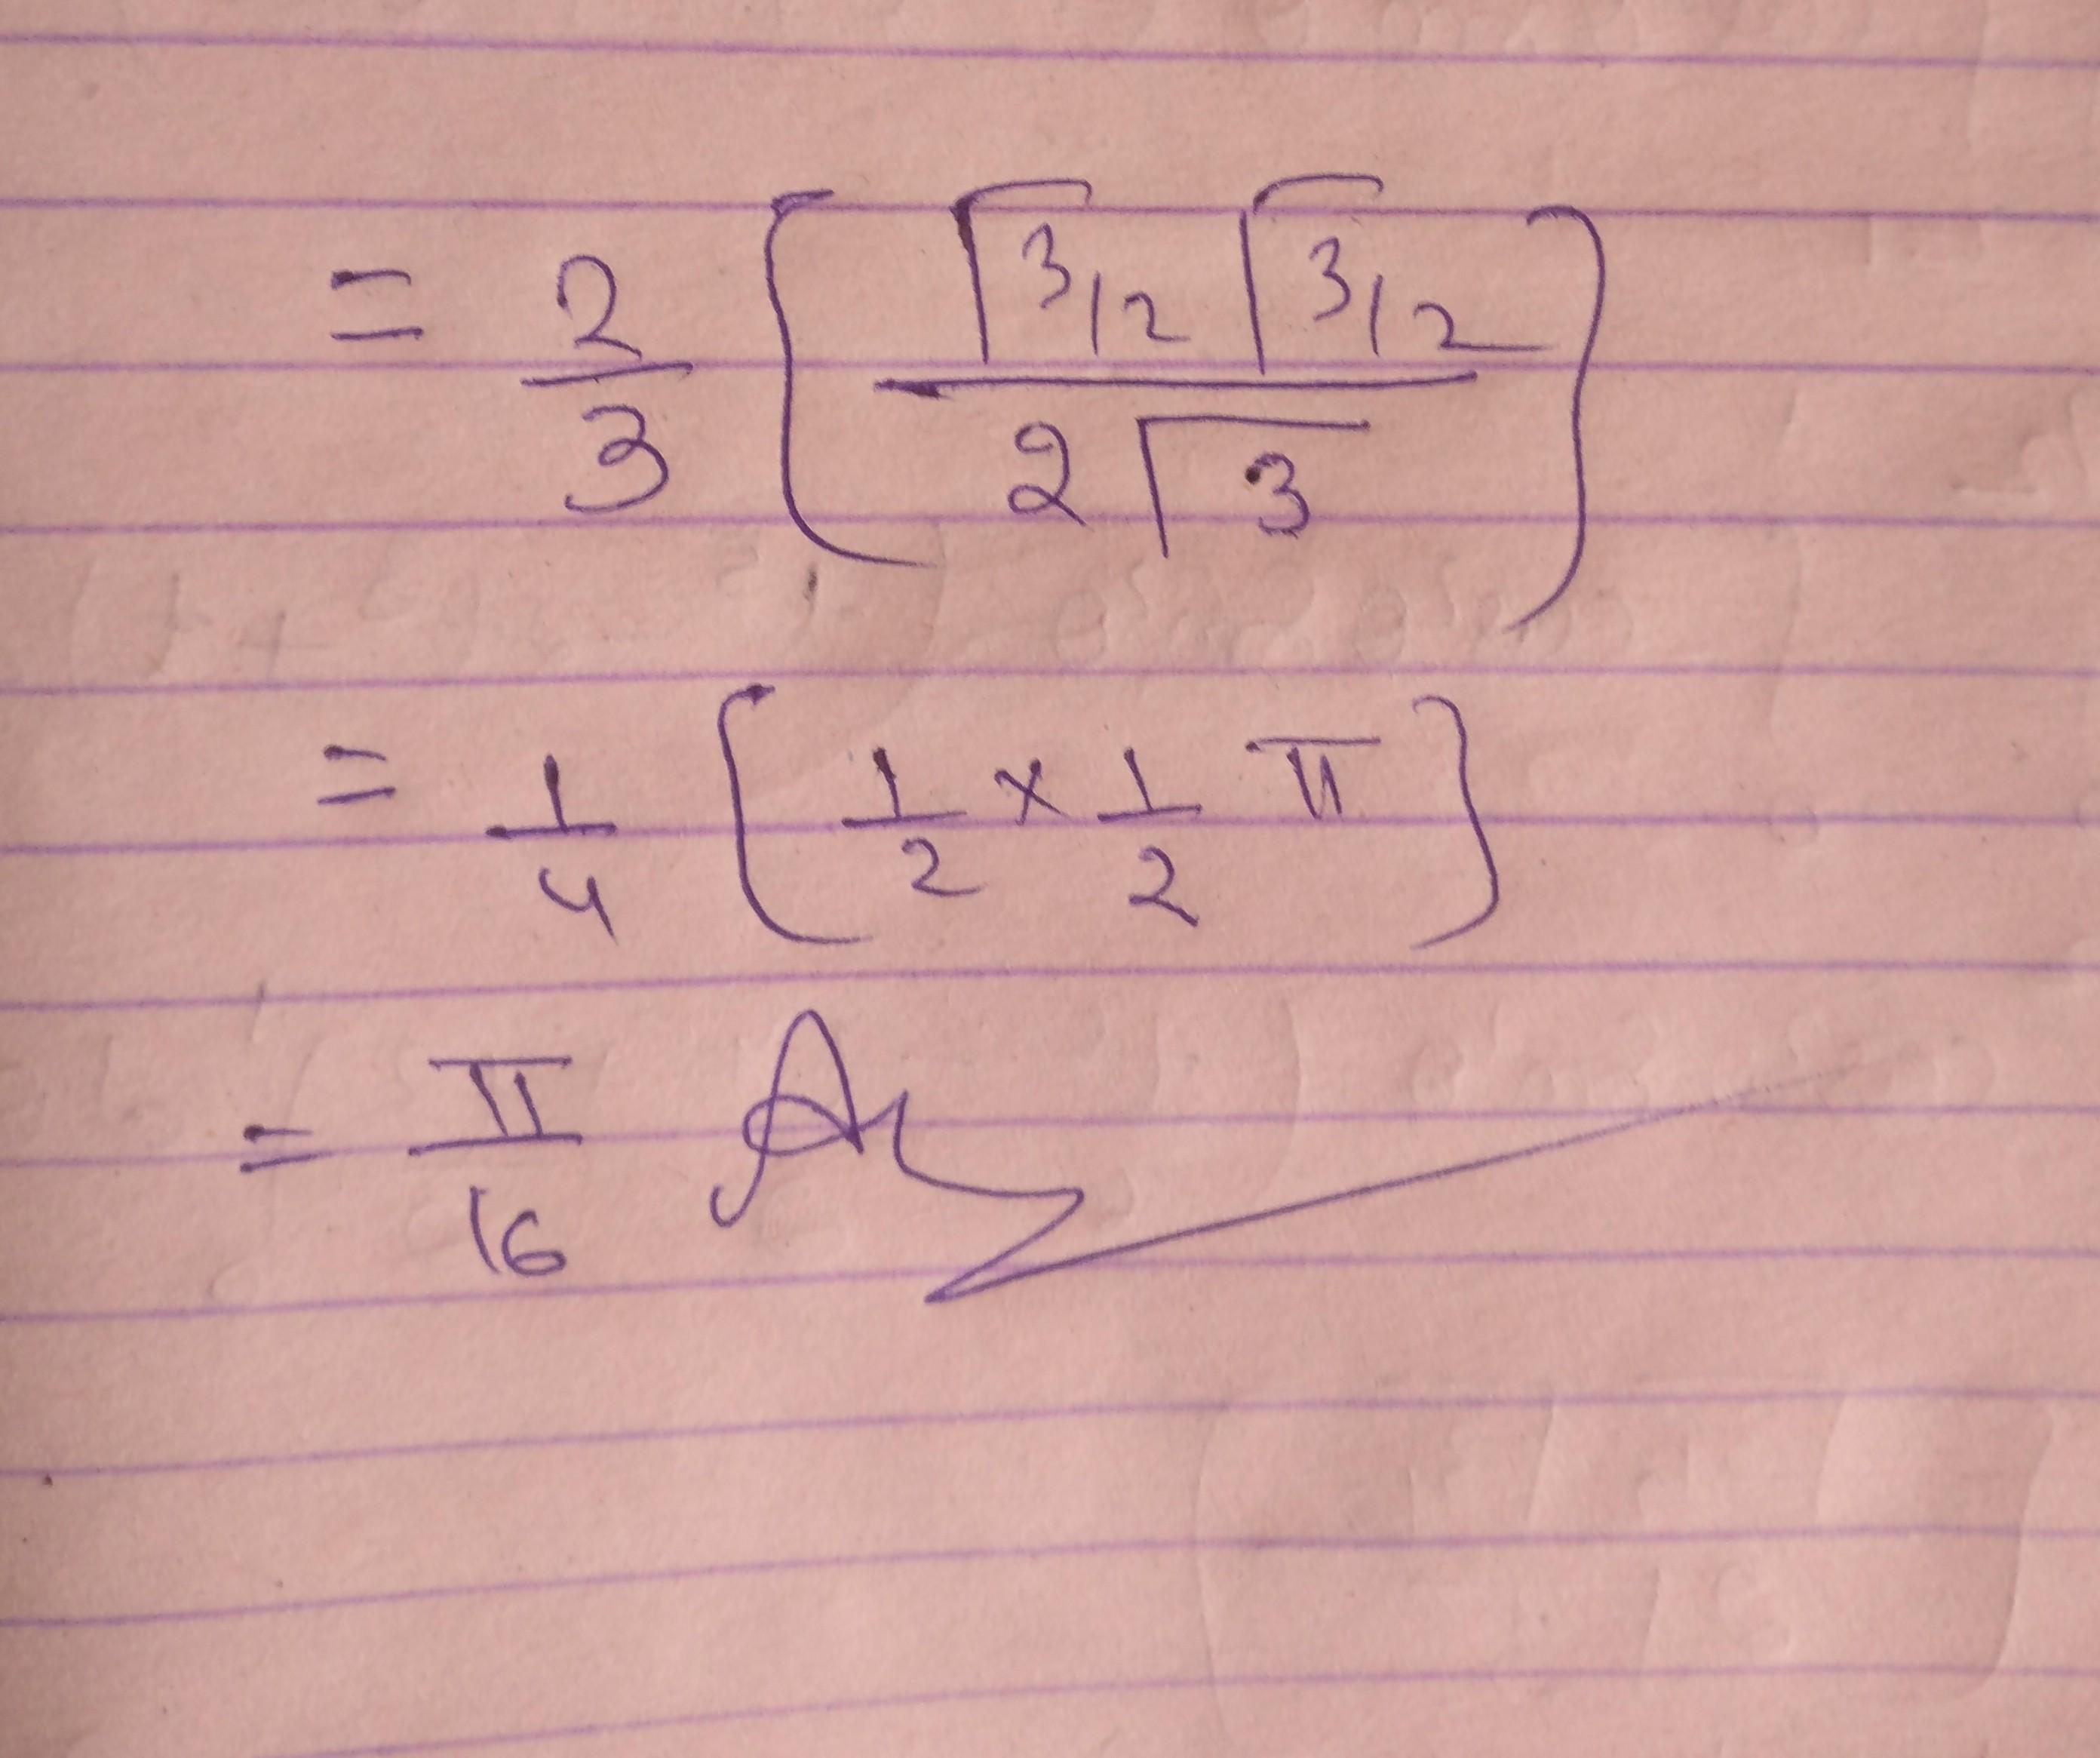 = 2/3 [ (Γ3/2 Γ3/2) / (2Γ3) ]
= 1/4 [ 1/2 × 1/2 π ]
= π/16